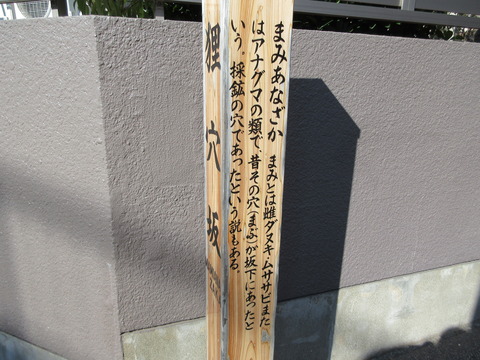 まみあなざか まみとは雌ダヌキ・ムササビまた
はアナグマの類で、昔その穴(まぶ)が坂下にあったと
いう。採鉱の穴であったという説もある。
狸穴坂